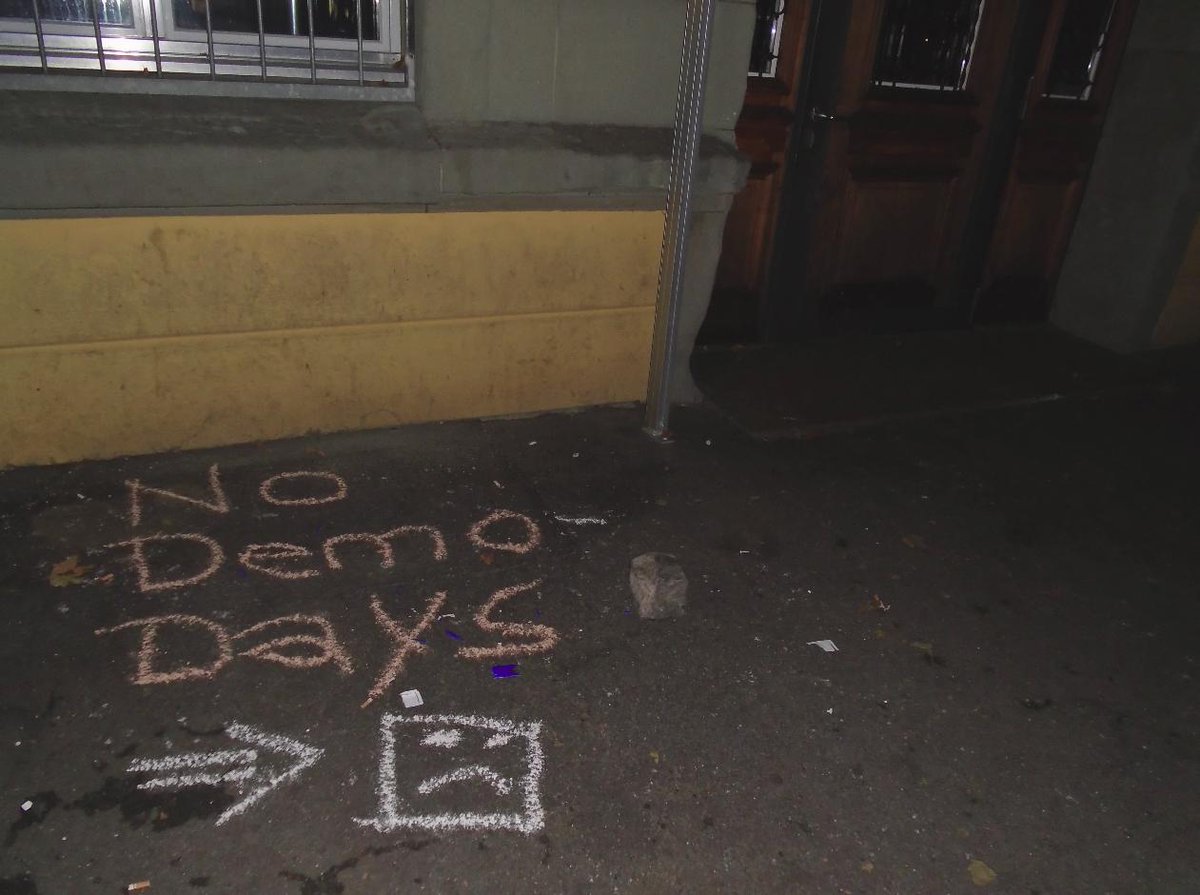 No
Demo
Days
⇒